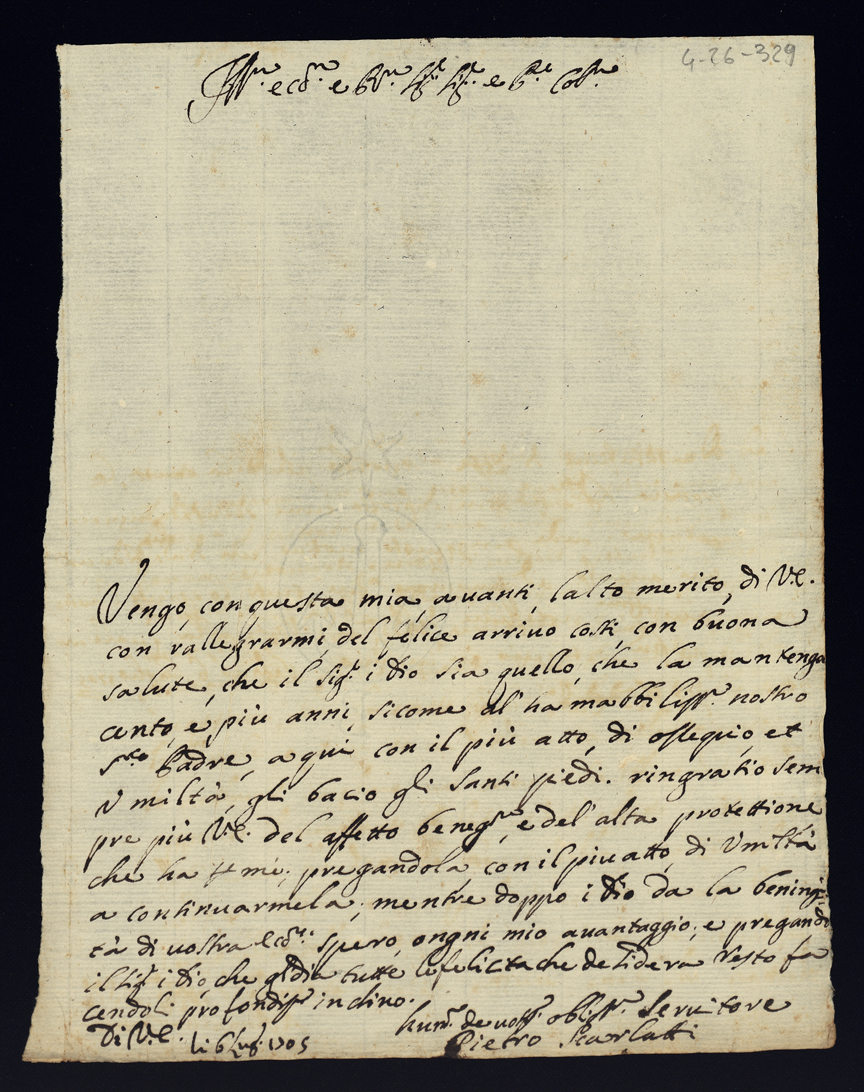 4-26-329
Illmo. e ccmo. e Rmo. Sigr. Sigr. e Pne. Colmo.
Vengo, con questa mia, auanti, lalto merito, di V.E.
con rallegrarmi, del felice arriuo costi, con buona
salute, che il Sigr. i dio sia quello, che la mantenga
cento, e, più anni, sicome al' ha mabbilissmo. nostro
Sto. Padre, a qui con il più atto, di ossequio, et
Vmiltà, gli bacio gli Santi piedi. ringratio sem
pre più V.E. del affetto benegmo, e del' alta protettione
che ha me; pregandola, con il piu atto, di Vmiltà
a continuarmela; mentre doppo i dio da la bening:
tà di uostra Eccza: spero, ongni mio auantaggio; e pregando
il Sigr i Dio, che gli dia tutte le felicita che desidera resto fa
cendoli profondissma inchino.
Di V.E. li 6 lug: 1705
humo. deuotmo. obligmo. Seruitore
Pietro Scarlatti